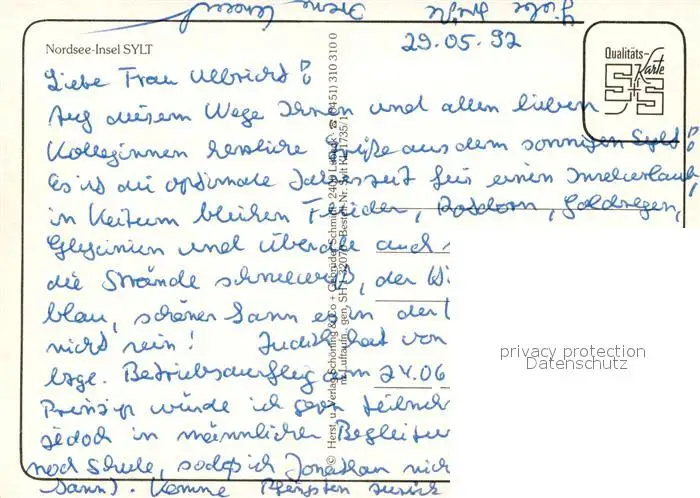 Liebe Grüße Irene
29.05.92
Nordsee-Insel SYLT
Qualitäts-
Karte
S+S
Liebe Frau Ulbricht!
Auf diesem Wege Ihnen und allen lieben
Kolleginnen herzliche Grüße aus dem sonnigen Sylt!
Es ist die optimale Jahreszeit für einen Inselurlaub,
in Keitum blühen Flieder, Rotdorn, Goldregen,
Glyzinien und überall auch
die Strände schneeweiß, der
blau, schöner kann es in der
nicht sein! Judith hat von
bzgl. Betriebsausflug am 24.06
Prinzip würde ich gern teilneh
jedoch in männlicher Begleitu
noch Schule, sodaß ich Jonathan nich
kann). Komme Pfingsten zurück
© Herst. u. Verlag Schöning & Co + Gebrüder Schmidt, 2400 Lübeck, ☎ (0451) 310 310 0
privacy protection
Datenschutz